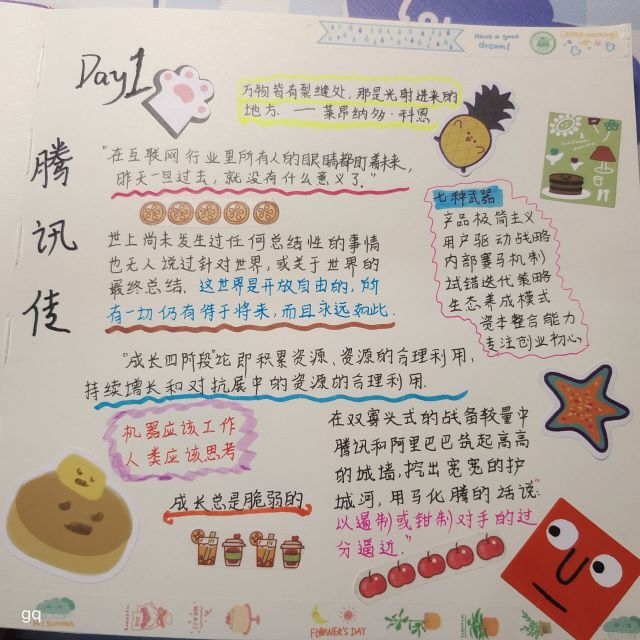 Have a good
dream!
Day1
万物皆有裂缝处,那是光射进来的
地方.——莱昂纳多·科恩
腾讯传
"在互联网行业里所有人的眼睛都盯着未来,
昨天一旦过去,就没有什么意义了."
世上尚未发生过任何总结性的事情
也无人说过针对世界,或关于世界的
最终总结.这世界是开放自由的,所
有一切仍有待于将来,而且永远如此.
七种武器
产品极简主义
用户驱动战略
内部赛马机制
试错迭代策略
生态养成模式
资本整合能力
专注创业初心
"成长四阶段"论即积累资源、资源的合理利用,
持续增长和对抗展中的资源的合理利用.
机器应该工作
人类应该思考
成长总是脆弱的
在双寡头式的战备较量中
腾讯和阿里巴巴筑起高高
的城墙,挖出宽宽的护
城河,用马化腾的话说:
以遏制或钳制对手的过
分逼近."
gq
Hi! SUMMER
FLOWER'S DAY